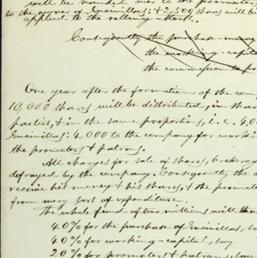 will be handed over to the promoter,
to the owner of Encinillas; & 2,500 shares will be
applied to the rolling stock.
Consequently the purchase money
the working-capital
the commission to pro
One year after the formation of the com
10,000 shares will be distributed, in shar
parties, & in the same proportion, i.e. 4,0
Encinillas; 4,000 to the company for workin
the promoters & patron.
All charges for sale of shares, brokerag
defrayed by the company. Consequently the o
receive his money & his shares, & the promote
from every sort of expenditure.
The whole fund of two millions will then
40% for the purchase of Encinillas, say
40% for working-capital, say
20% for promoters & patronage